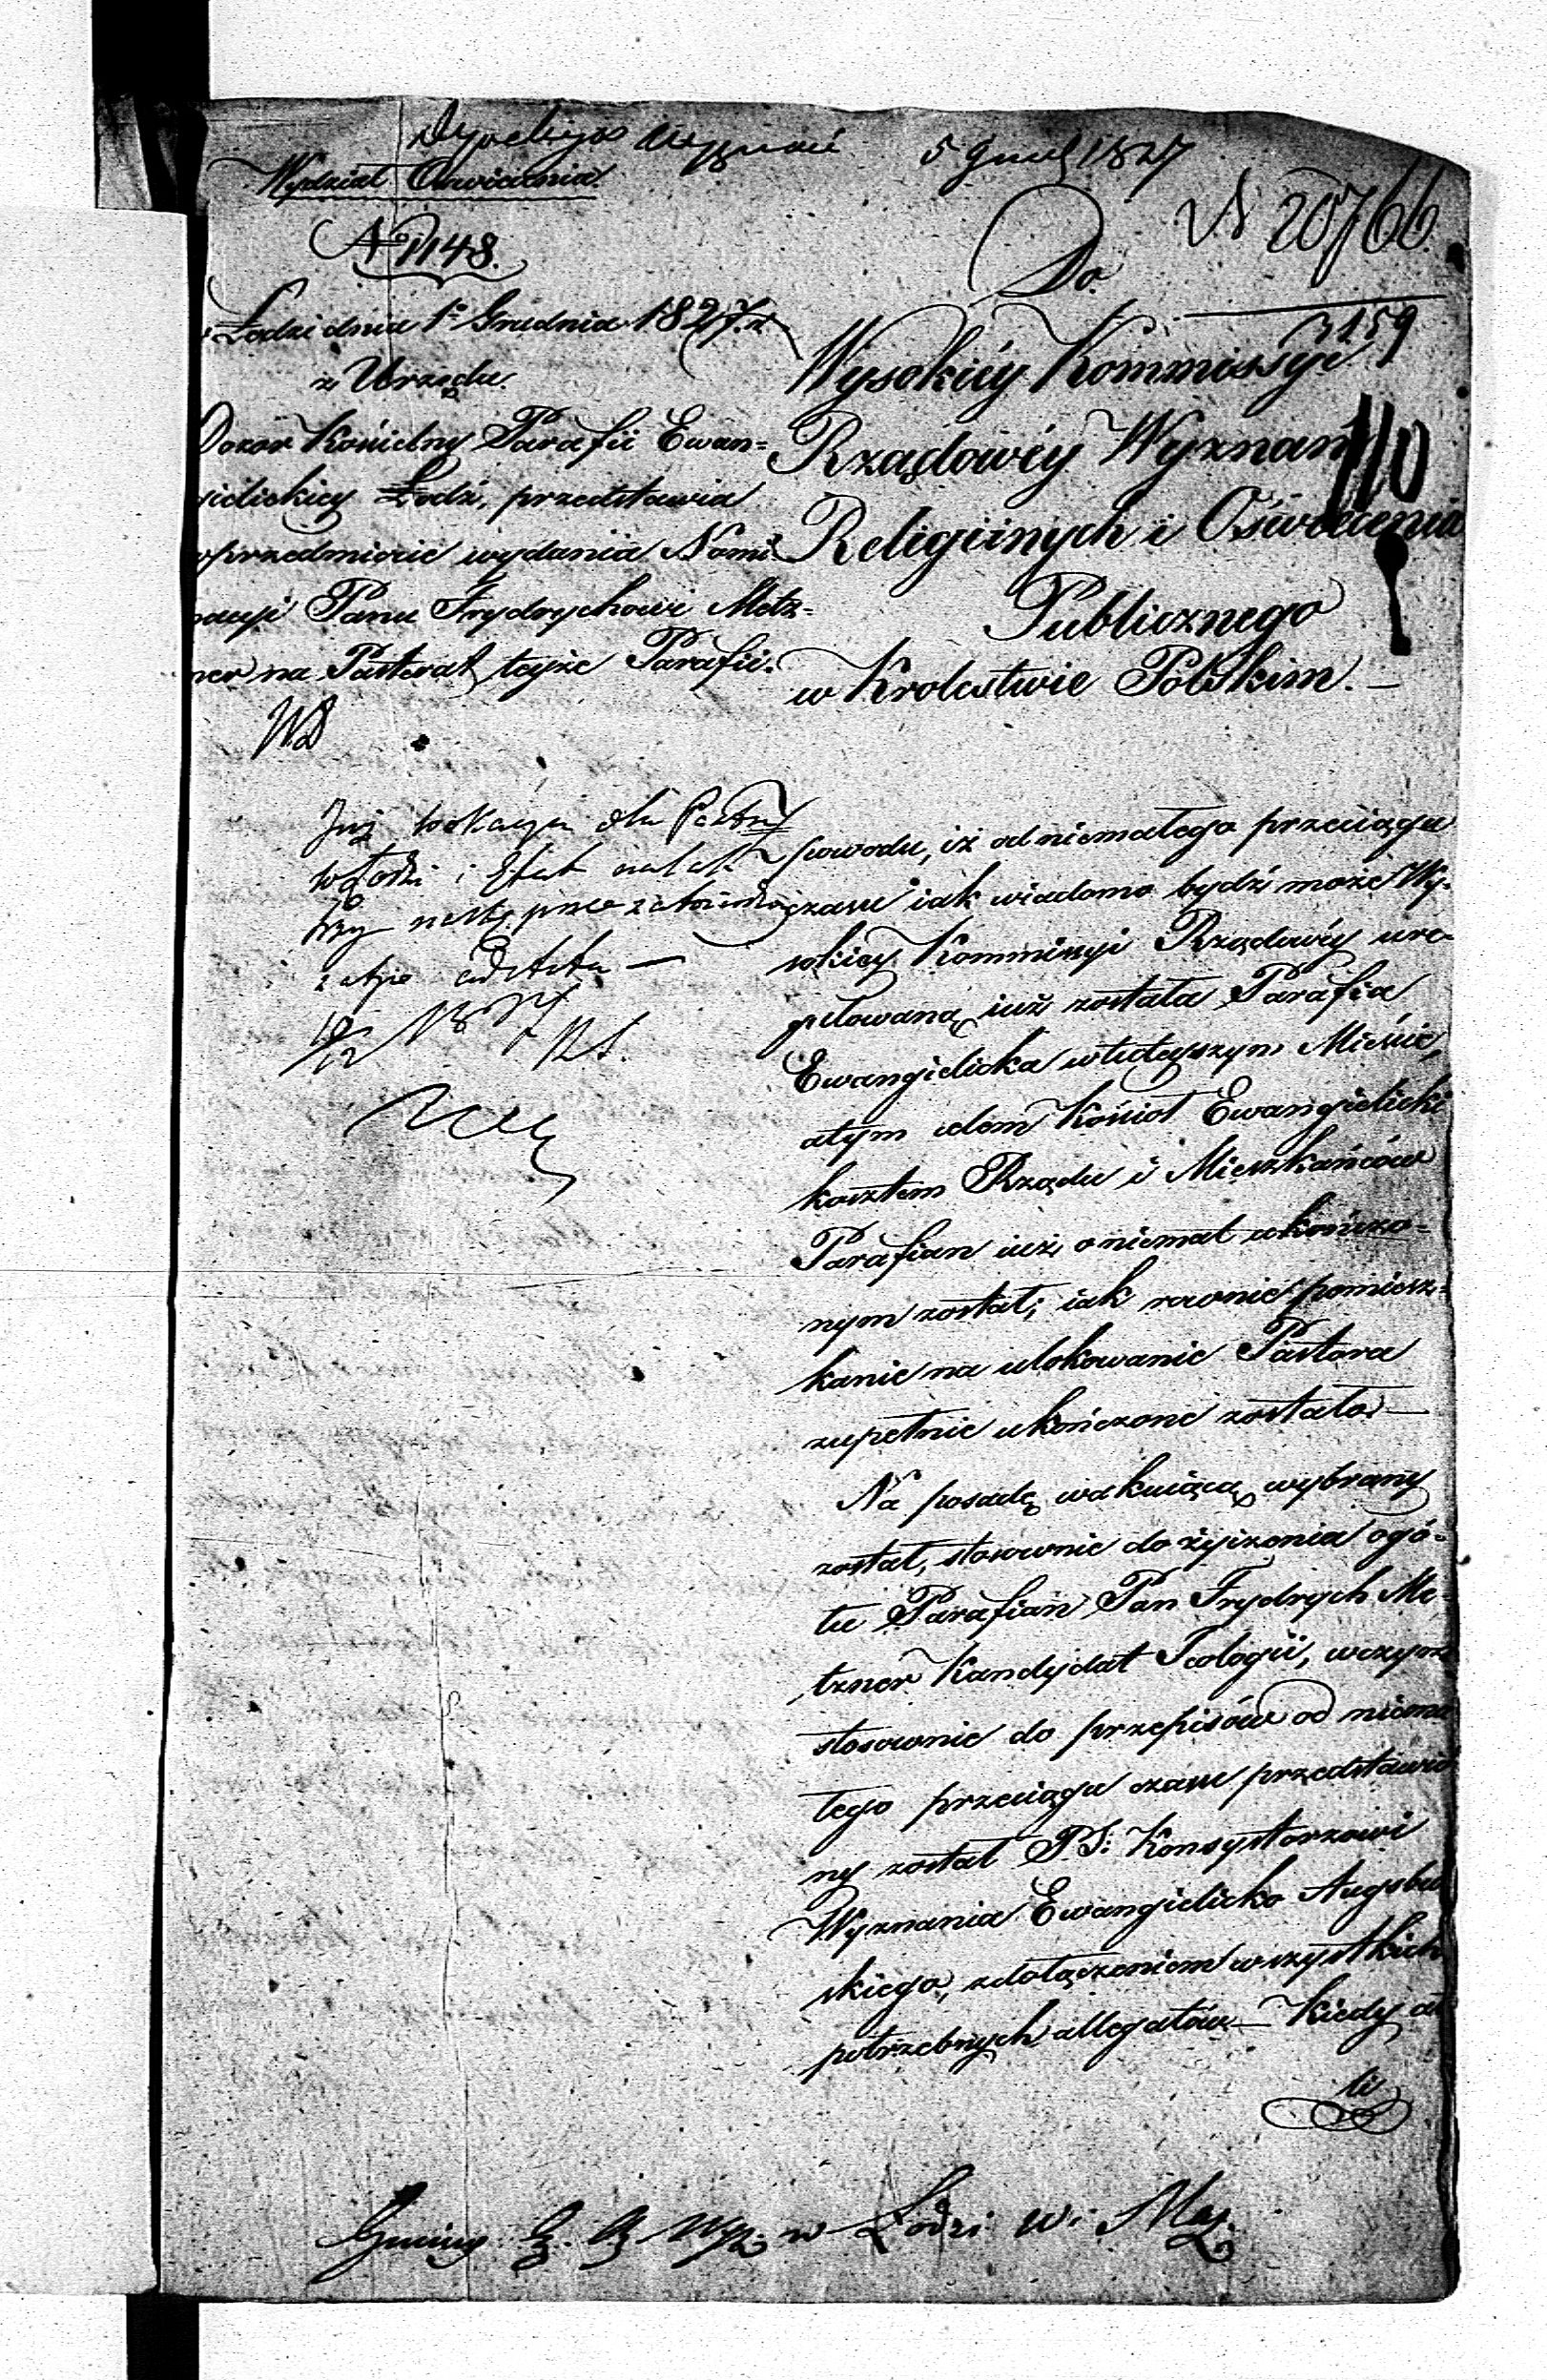 5 Grud 1827
Wydział Oswiecenia.
N 20766.
No 1148.
Do.
w Łodzi dnia 1o Grudnia 1827. r
3159
z Urzędu.
Wysokiéy Kommissyi
110
Dozor Kościelny Parafii Ewan=
gielickiey Łodź, przedstawia
w przedmiocie wydania Nomi=
nacyi Panu Frydrychowi Metz=
ner na Pastorat teyże Parafii.
Rządowéy Wyznań
Religiinych i Oświecenia
Publicznego
w Krolestwie Polskim. —
Już wokacya dla Pastora
w Łodzi i Etat
z powodu, iż od niemałego przeciągu
czasu iak wiadomo bydź może Wy-
sokiey Kommissyi Rządowéy ure-
gulowaną iuż została Parafia
Ewangielicka w tuteyszym Mieście,
a tym samem Kościoł Ewangielicki
kosztem Rządu i Mieszkańców
Parafian iuż, o niemal ukończo=
nym został; iak rownie pomiesz=
kanie na ulokowanie Pastora
zupełnie ukończone zostało —
Na posadę wakuiącą wybrany
został, stosownie do życzenia ogó=
łu Parafian Pan Frydrych Me=
tzner Kandydat Teologii, w czym
stosownie do przepisów od niema
łego przeciągu czasu przedstawio
ny został P. S: Konsystorzowi
Wyznania Ewangielicko Augsbur
skiego, z dołączeniem wszystkich
potrzebnych allegatów — Kiedy a
li
Gminy w Łodzi W. Maz.